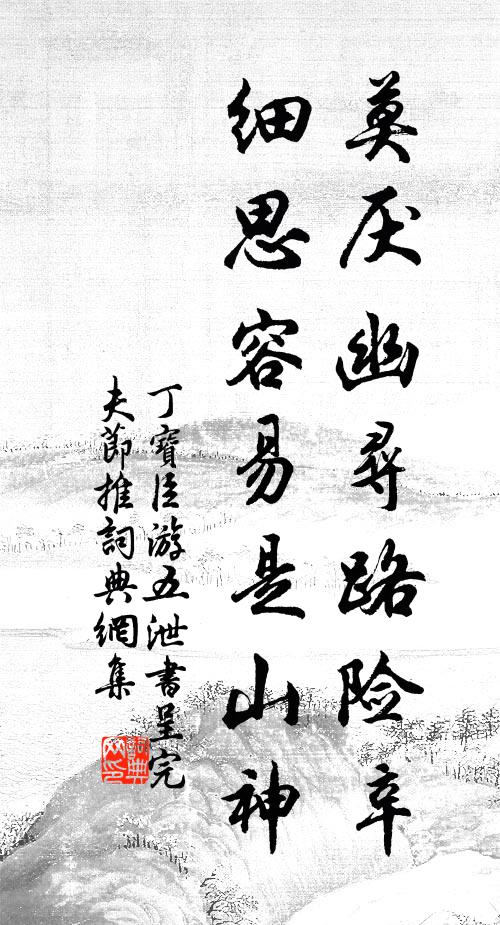 莫厌幽寻路险辛
细思容易是山神
丁寶臣游五泄書呈完
夫節推詞典網集